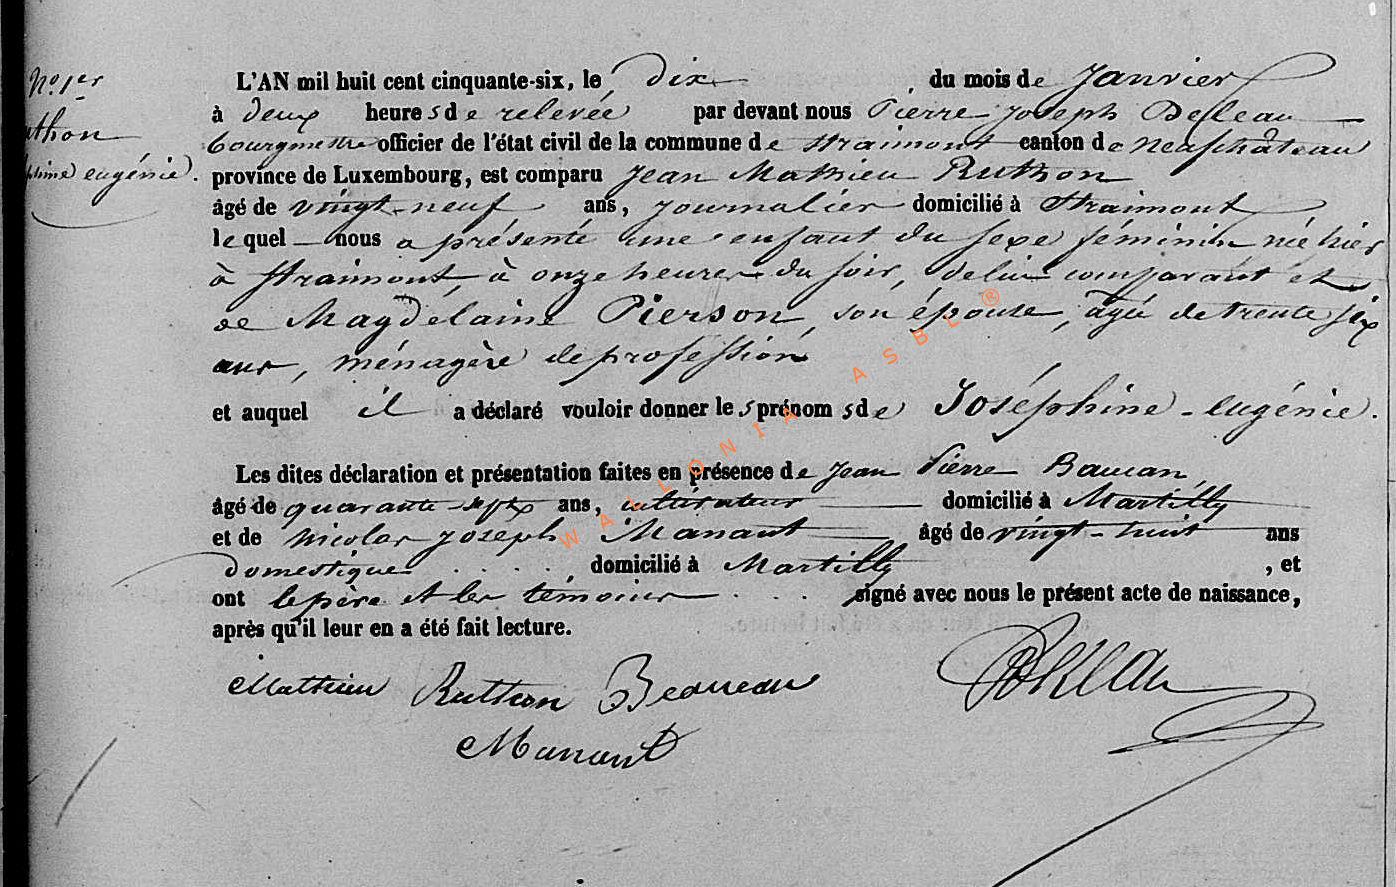 No 1er
thon
phine eugénie.
L'AN mil huit cent cinquante-six, le dix du mois de Janvier
à deux heures de relevée par devant nous Pierre Joseph Desleau
bourgmestre officier de l'état civil de la commune de Straimont canton de neufchâteau
province de Luxembourg, est comparu Jean Mathieu Ruthon
âgé de vingt-neuf ans, journalier domicilié à Straimont
lequel nous a présenté une enfant du sexe féminin née hier
à Straimont, à onze heures du soir, de lui comparant et
de Magdelaine Pierson, son épouse, agée de trente six
ans, ménagère de profession
et auquel il a déclaré vouloir donner les prénoms de Joséphine-eugénie.
Les dites déclaration et présentation faites en présence de Jean Pierre
âgé de quarante-sept ans, cultivateur domicilié à Martilly
et de nicolas joseph Manant âgé de vingt-huit ans
Domestique , domicilié à Martilly , et
ont le père et les témoins signé avec nous le présent acte de naissance,
après qu'il leur en a été fait lecture.
Mathieu Ruthon Beauveau
Manant
WALLONIA ASBL ®